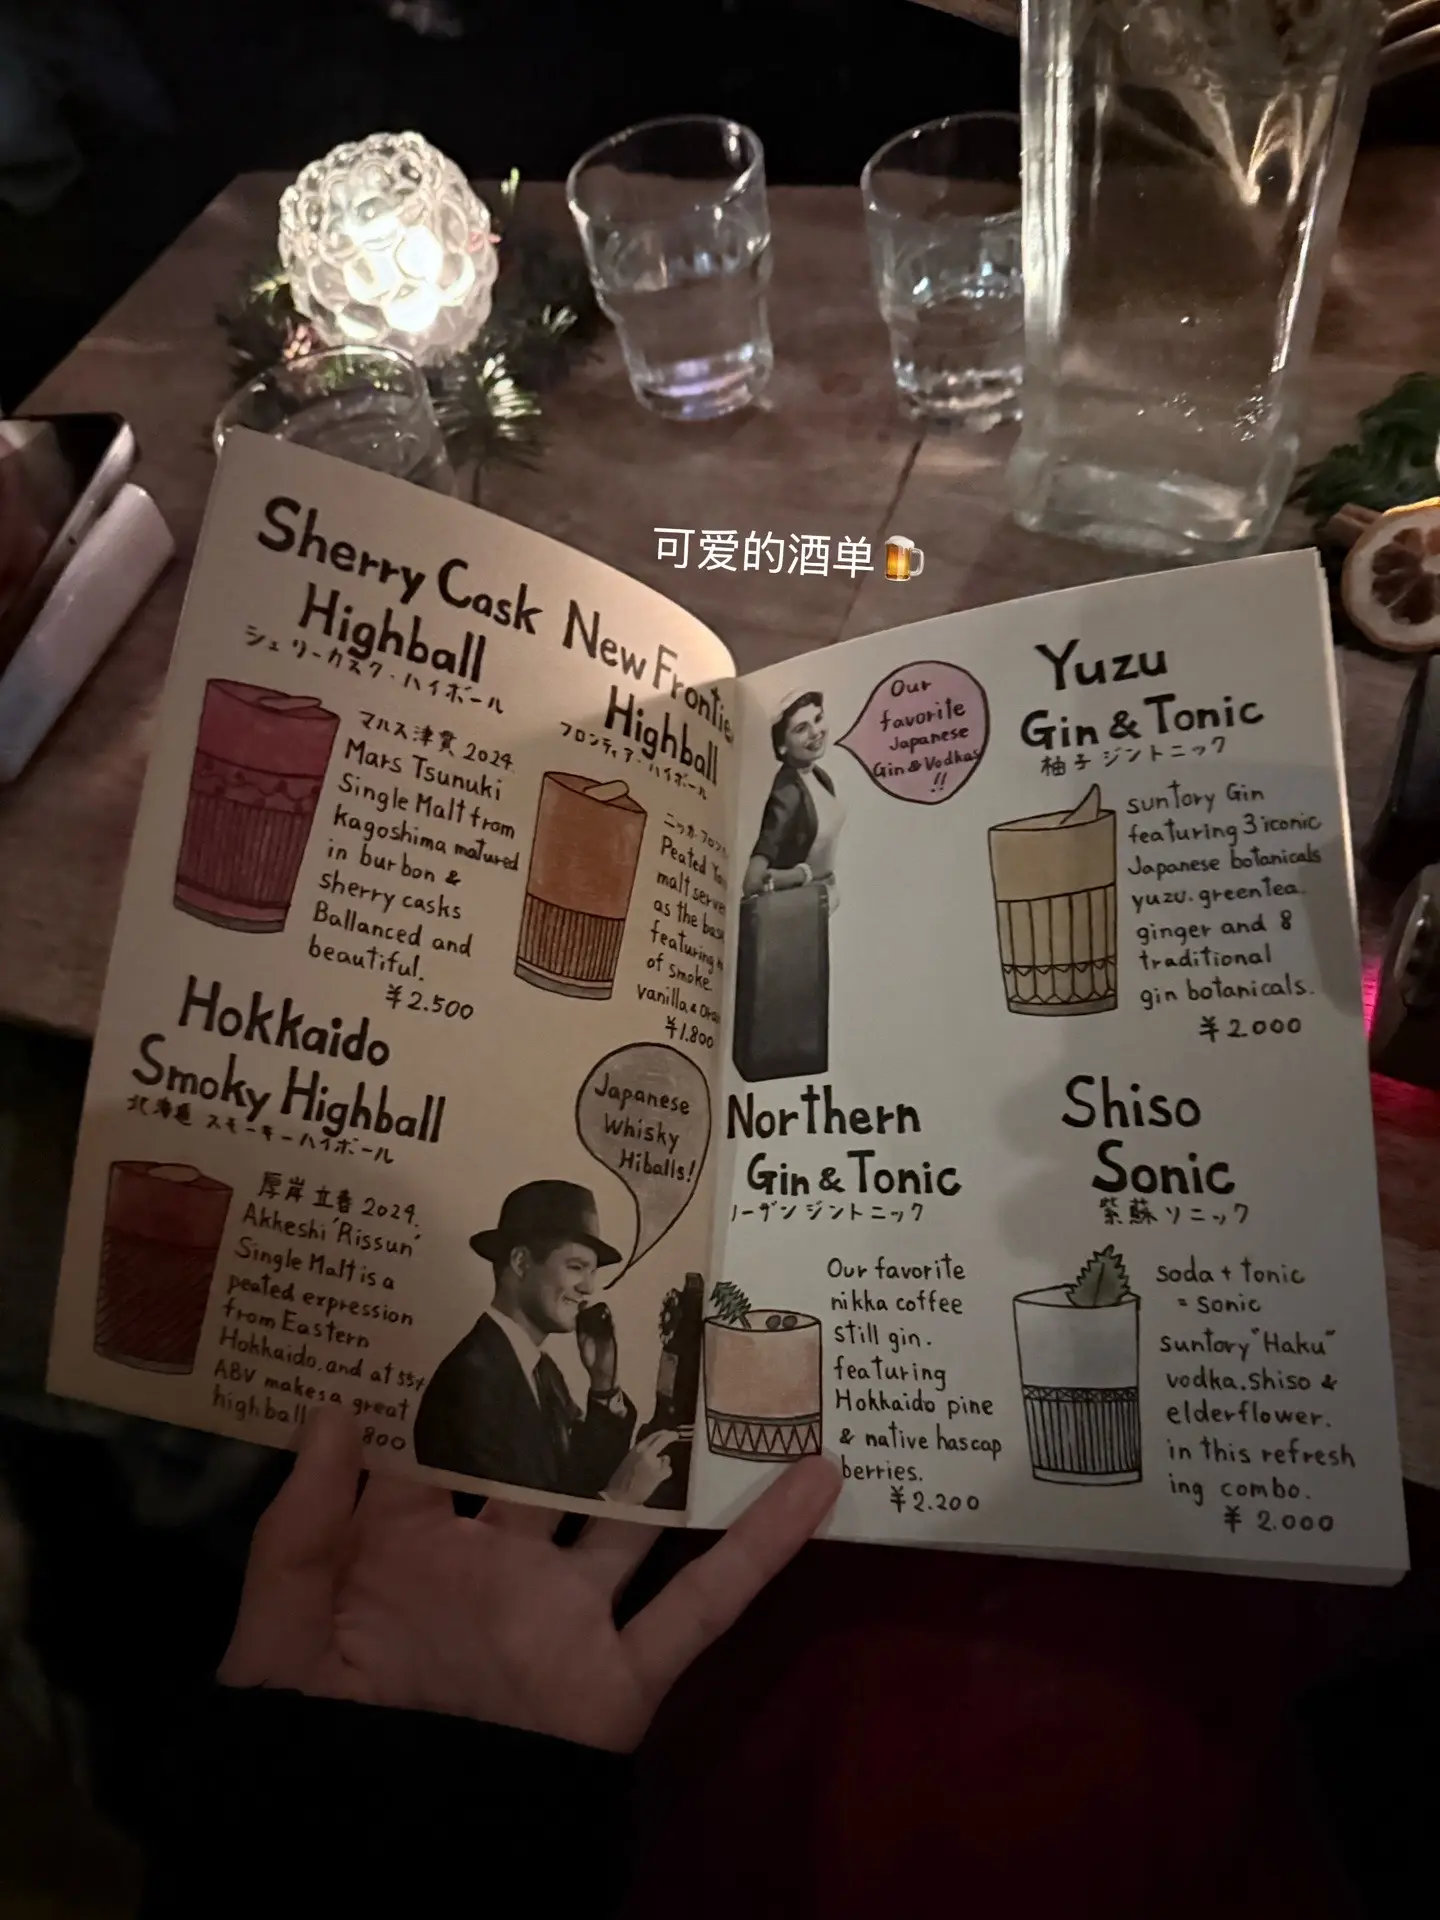 可爱的酒单🍺
Sherry Cask
Highball
シェリーカスク・ハイボール
マルス津貫 2024.
Mars Tsunuki
Single Malt from
kagoshima matured
in burbon &
sherry casks
Ballanced and
beautiful.
¥2.500
New Frontie
Highball
フロンティア・ハイボール
ニッカ・フロン
Peated
malt serve
as the bas
featuring
of smoke.
vanilla &
¥1.800
Hokkaido
Smoky Highball
北海道 スモーキーハイボール
厚岸 立春 2024.
Akkeshi 'Rissun'
Single Malt is a
peated expression
from Eastern
Hokkaido, and at 55%
ABV makes a great
highball
800
Japanese
Whisky
Hiballs!
Our
favorite
Japanese
Gin & Vodkas
!!
Yuzu
Gin & Tonic
柚子 ジントニック
suntory Gin
featuring 3 iconic
Japanese botanicals
yuzu. greentea.
ginger and 8
traditional
gin botanicals.
¥2.000
Northern
Gin & Tonic
ノーザン ジントニック
Our favorite
nikka coffee
still gin.
featuring
Hokkaido pine
& native hascap
berries.
¥2.200
Shiso
Sonic
紫蘇 ソニック
soda + tonic
= sonic
suntory "Haku"
vodka. shiso &
elderflower.
in this refresh
ing combo.
¥ 2.000